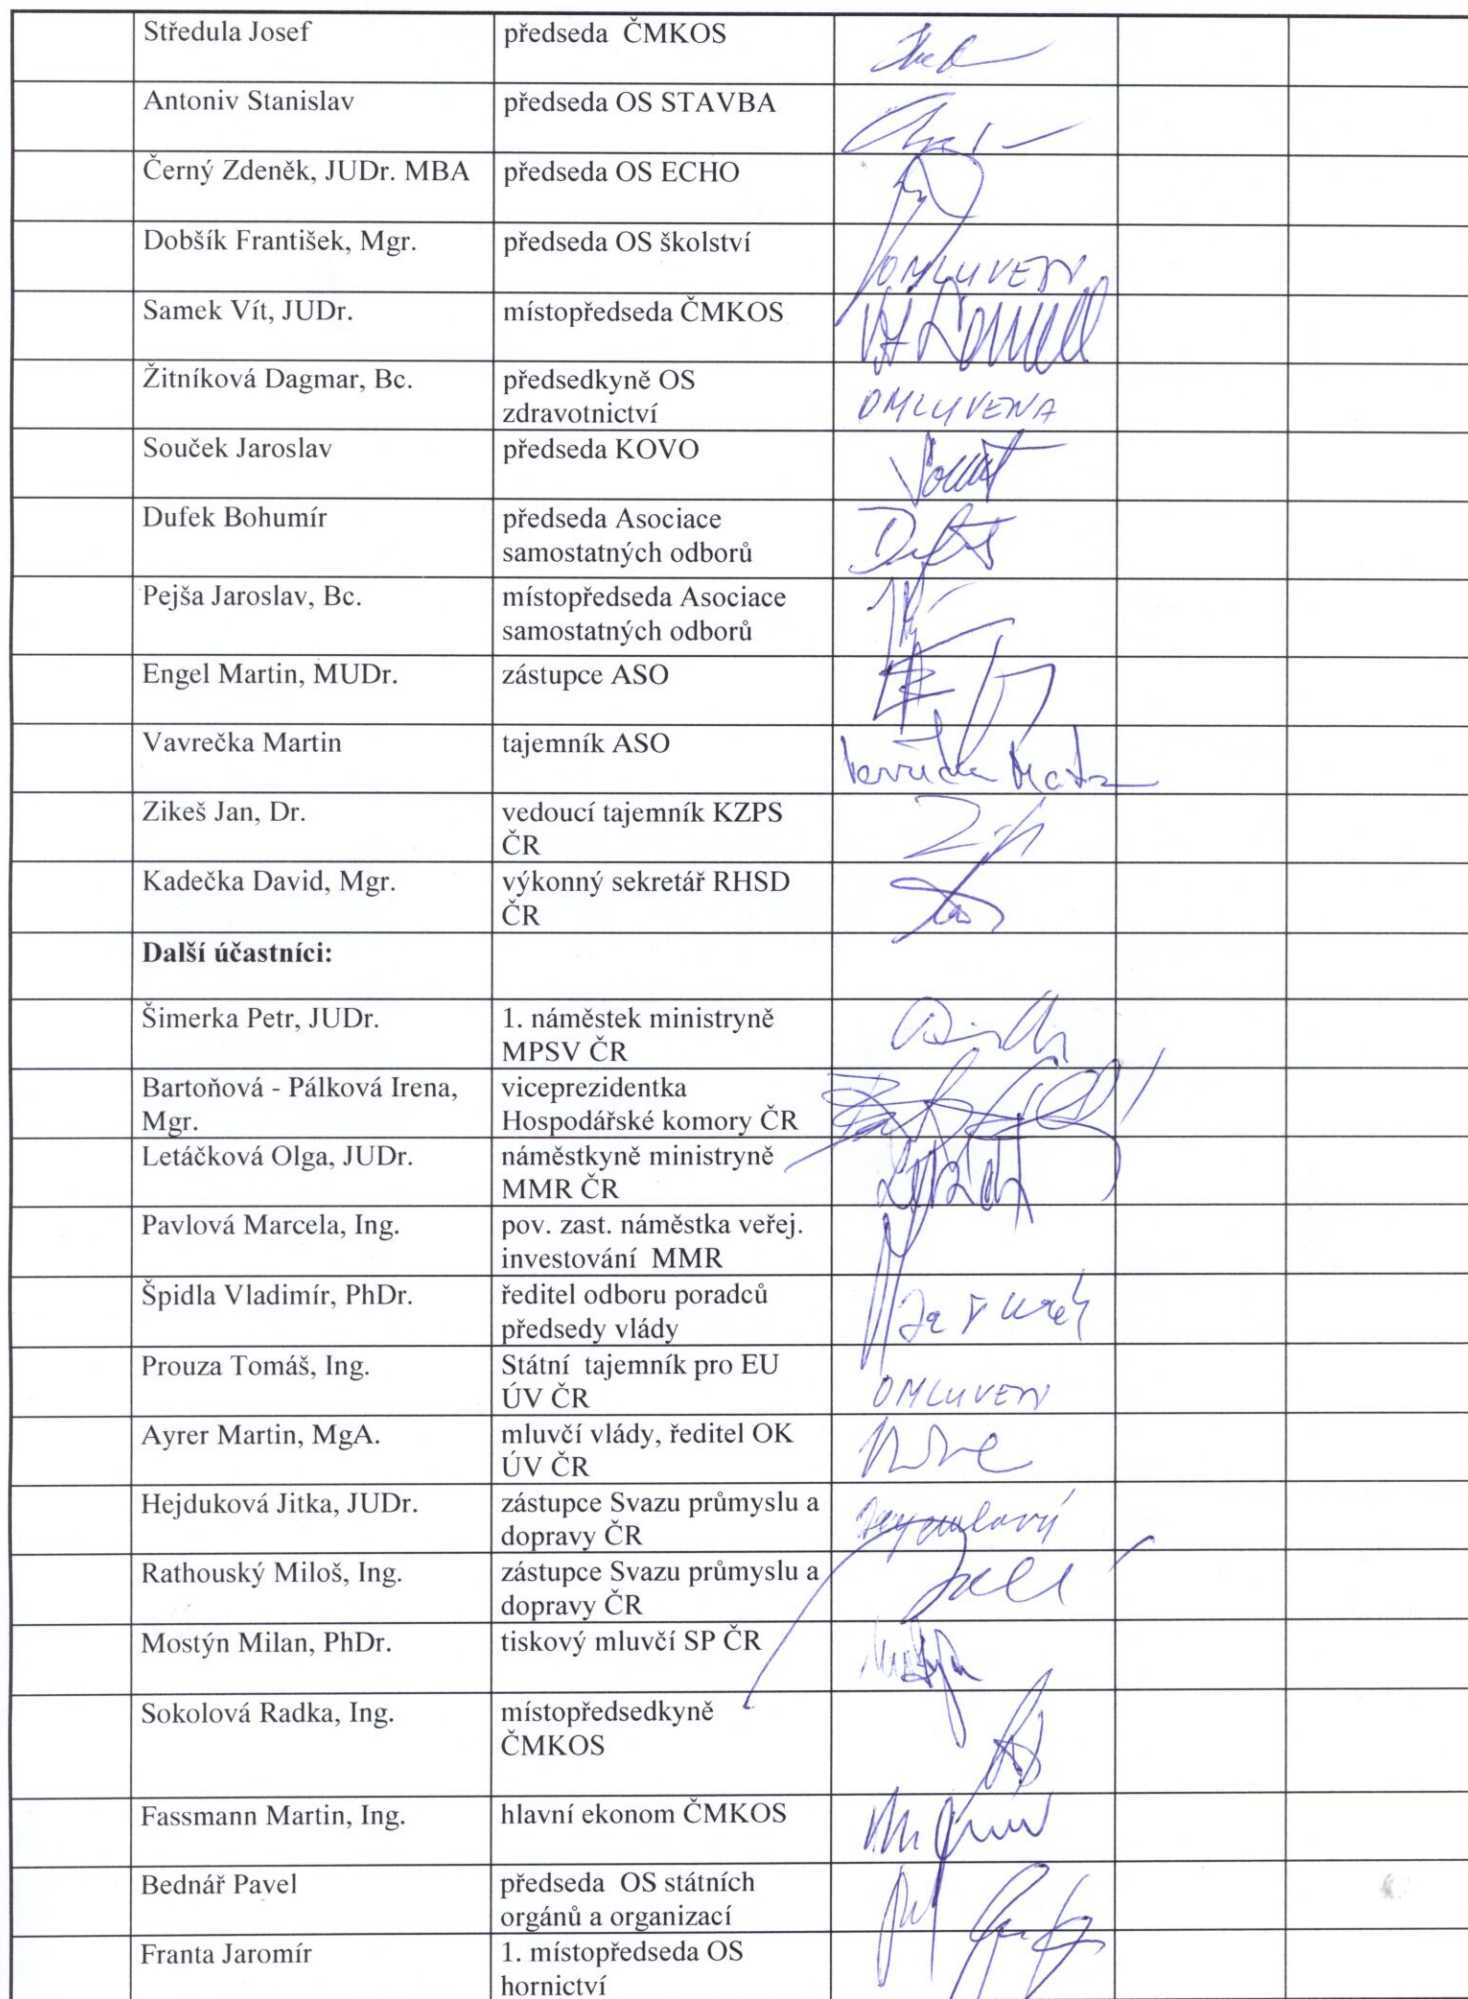 Středula Josef
předseda ČMKOS
Antoniv Stanislav
předseda OS STAVBA
Černý Zdeněk, JUDr. MBA
předseda OS ECHO
Dobšík František, Mgr.
předseda OS školství
OMLUVEN
Samek Vít, JUDr.
místopředseda ČMKOS
Žitníková Dagmar, Bc.
předsedkyně OS
zdravotnictví
OMLUVENA
Souček Jaroslav
předseda KOVO
Dufek Bohumír
předseda Asociace
samostatných odborů
Pejša Jaroslav, Bc.
místopředseda Asociace
samostatných odborů
Engel Martin, MUDr.
zástupce ASO
Vavrečka Martin
tajemník ASO
Zikeš Jan, Dr.
vedoucí tajemník KZPS
ČR
Kadečka David, Mgr.
výkonný sekretář RHSD
ČR
Další účastníci:
Šimerka Petr, JUDr.
1. náměstek ministryně
MPSV ČR
Bartoňová - Pálková Irena,
Mgr.
viceprezidentka
Hospodářské komory ČR
Letáčková Olga, JUDr.
náměstkyně ministryně
MMR ČR
Pavlová Marcela, Ing.
pov. zast. náměstka veřej.
investování MMR
Špidla Vladimír, PhDr.
ředitel odboru poradců
předsedy vlády
Prouza Tomáš, Ing.
Státní tajemník pro EU
ÚV ČR
OMLUVEN
Ayrer Martin, MgA.
mluvčí vlády, ředitel OK
ÚV ČR
Hejduková Jitka, JUDr.
zástupce Svazu průmyslu a
dopravy ČR
Rathouský Miloš, Ing.
zástupce Svazu průmyslu a
dopravy ČR
Mostýn Milan, PhDr.
tiskový mluvčí SP ČR
Sokolová Radka, Ing.
místopředsedkyně
ČMKOS
Fassmann Martin, Ing.
hlavní ekonom ČMKOS
Bednář Pavel
předseda OS státních
orgánů a organizací
Franta Jaromír
1. místopředseda OS
hornictví